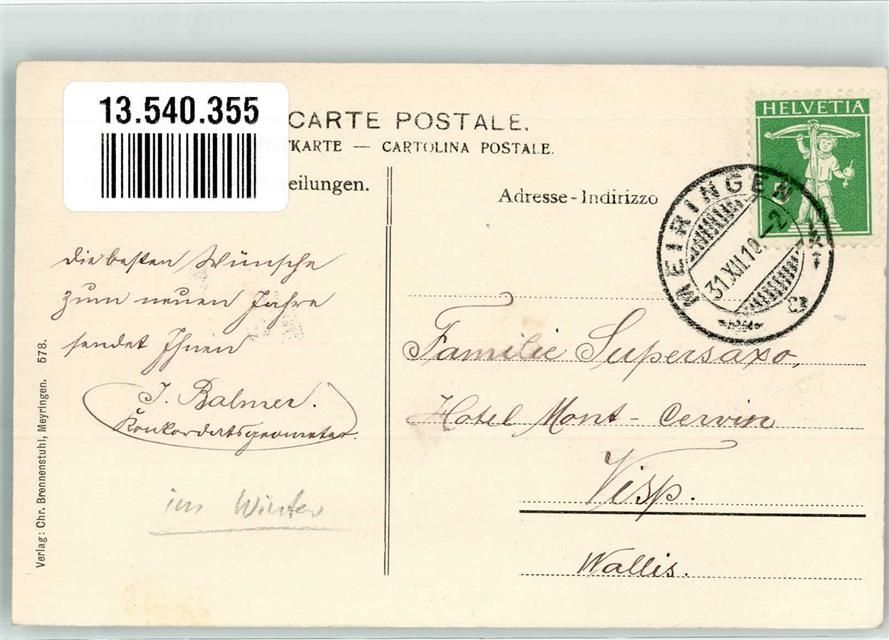 13.540.355
CARTE POSTALE.
TKARTE — CARTOLINA POSTALE.
eilungen.
Adresse - Indirizzo
HELVETIA
MEIRINGEN
31.XII.10.-2
die besten Wünsche
zum neuen Jahre
sendet Ihnen
J. Balmer.
Konkordatsgeometer.
im Winter
Familie Supersaxo,
Hotel Mont - Cervin
Visp.
Wallis.
Verlag: Chr. Brennenstuhl, Meyringen. 578.